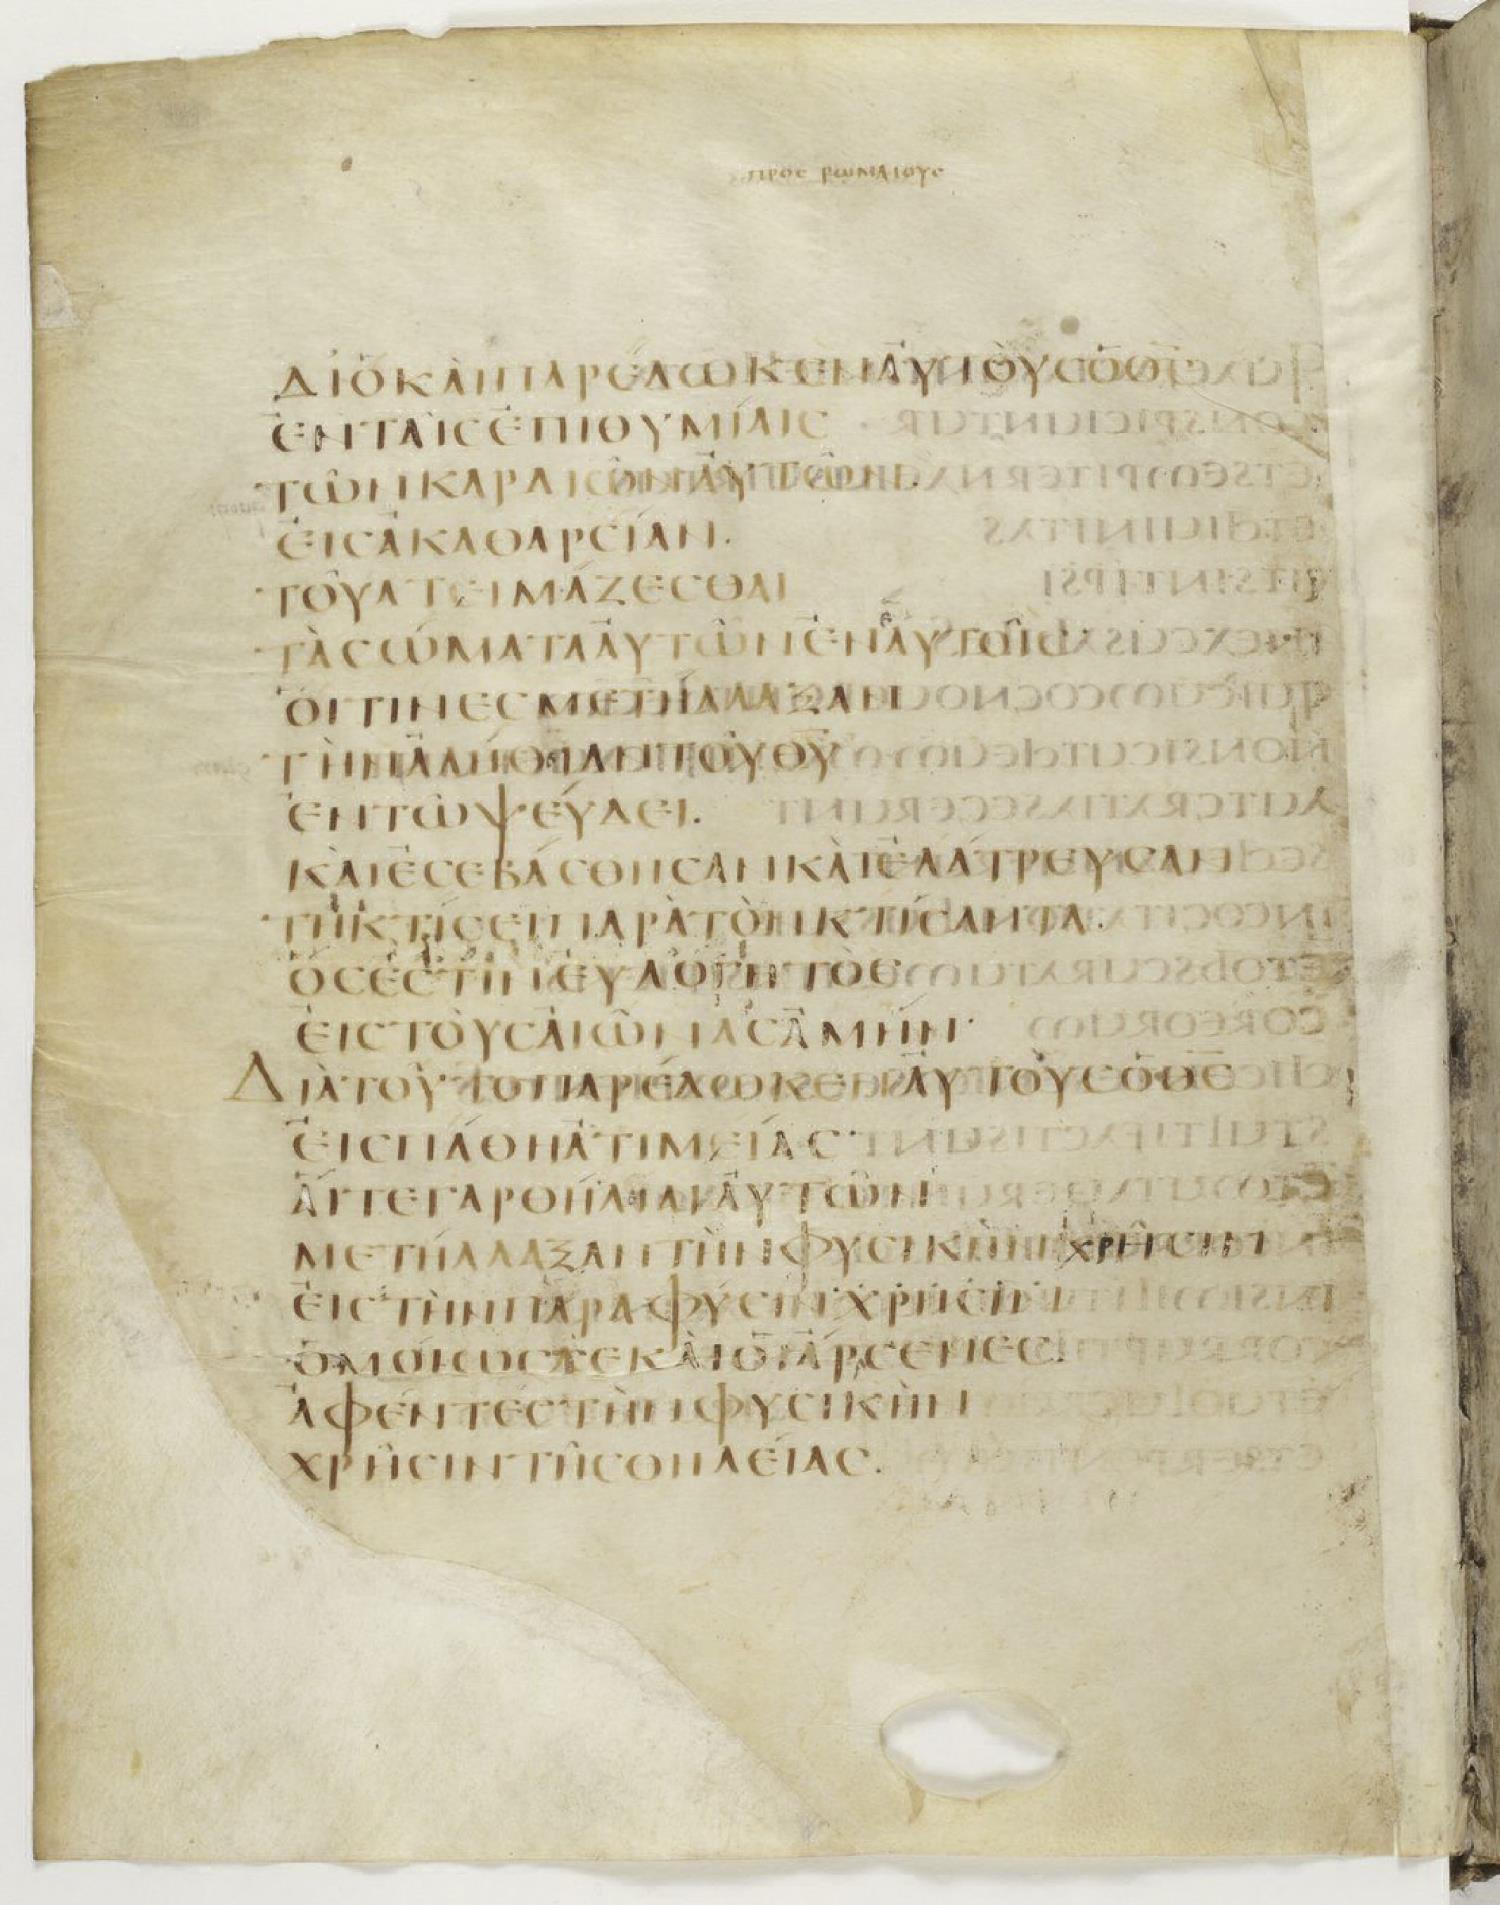 ΠΡΟΣ ΡΩΜΑΙΟΥΣ
ΔΙΟΚΑΙΠΑΡΕΔΩΚΕΝΑΥΤΟΥΣΟΘΣ
ΕΝΤΑΙΣΕΠΙΘΥΜΙΑΙΣ
ΤΩΝΚΑΡΔΙΩΝΑΥΤΩΝ.
ΕΙΣΑΚΑΘΑΡΣΙΑΝ.
ΤΟΥΑΤΕΙΜΑΖΕΣΘΑΙ
ΤΑΣΩΜΑΤΑΑΥΤΩΝΕΝΑΥΤΟΙΣ
ΟΙΤΙΝΕΣΜΕΤΗΛΛΑΞΑΝ
ΤΗΝΑΛΗΘΙΑΝΤΟΥΘΥ
ΕΝΤΩΨΕΥΔΕΙ.
ΚΑΙΕΣΕΒΑΣΘΗΣΑΝΚΑΙΕΛΑΤΡΕΥΣΑΝ
ΤΗΚΤΙΣΕΙΠΑΡΑΤΟΝΚΤΙΣΑΝΤΑ.
ΟΣΕΣΤΙΝΕΥΛΟΓΗΤΟΣ
ΕΙΣΤΟΥΣΑΙΩΝΑΣΑΜΗΝ·
ΔΙΑΤΟΥΤΟΠΑΡΕΔΩΚΕΝΑΥΤΟΥΣΟΘΣ
ΕΙΣΠΑΘΗΑΤΙΜΕΙΑΣ·
ΑΙΤΕΓΑΡΘΗΛΙΑΙΑΥΤΩΝ
ΜΕΤΗΛΛΑΞΑΝΤΗΝΦΥΣΙΚΗΝΧΡΗΣΙΝ
ΕΙΣΤΗΝΠΑΡΑΦΥΣΙΝΧΡΗΣΙΝ
ΟΜΟΙΩΣΤΕΚΑΙΟΙΑΡΣΕΝΕΣ.
ΑΦΕΝΤΕΣΤΗΝΦΥΣΙΚΗΝ
ΧΡΗΣΙΝΤΗΣΘΗΛΕΙΑΣ.